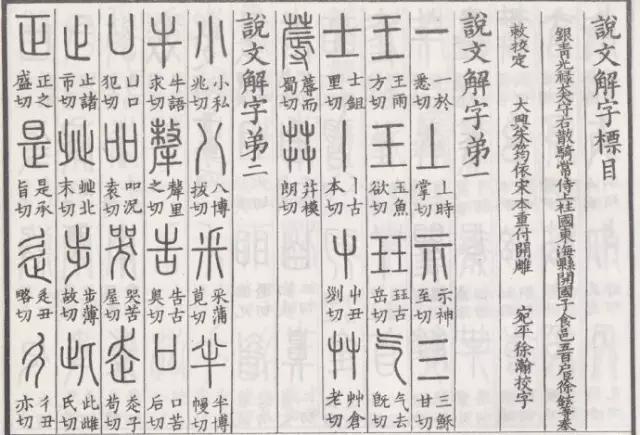 說文解字標目
銀青光祿大夫守右散騎常侍上柱國東海縣開國子食邑五百戶臣徐鉉等奉
敕校定 大興朱筠依宋本重付開雕 宛平徐瀚校字
說文解字弟一
一 一於悉切 丄 丄時掌切 示 示神至切 三 三穌甘切
王 王雨方切 玉 玉魚欲切 玨 玨古岳切 气 气去旣切
士 士鉏里切 丨 丨古本切 屮 屮丑列切 艸 艸倉老切
蓐 蓐而蜀切 茻 茻模朗切
說文解字弟二
小 小私兆切 八 八博拔切 釆 釆蒲莧切 半 半博幔切
牛 牛語求切 犛 犛里之切 告 告古奥切 口 口苦后切
凵 凵口犯切 吅 吅況袁切 哭 哭苦屋切 走 走子苟切
止 止諸市切 癶 癶北末切 步 步薄故切 此 此雌氏切
正 正之盛切 是 是承旨切 辵 辵丑略切 彳 彳丑亦切